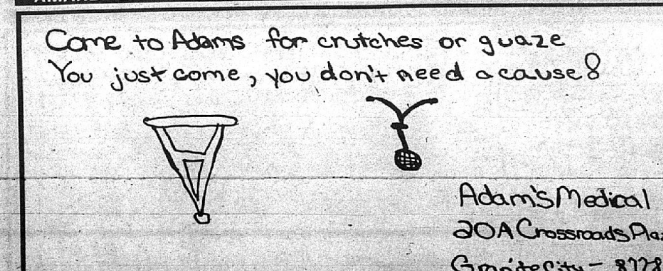 Come to Adams for crutches or guaze
You just come, you don't need a cause!
Adam's Medical
20A Crossroads Pla
Granite City - 877